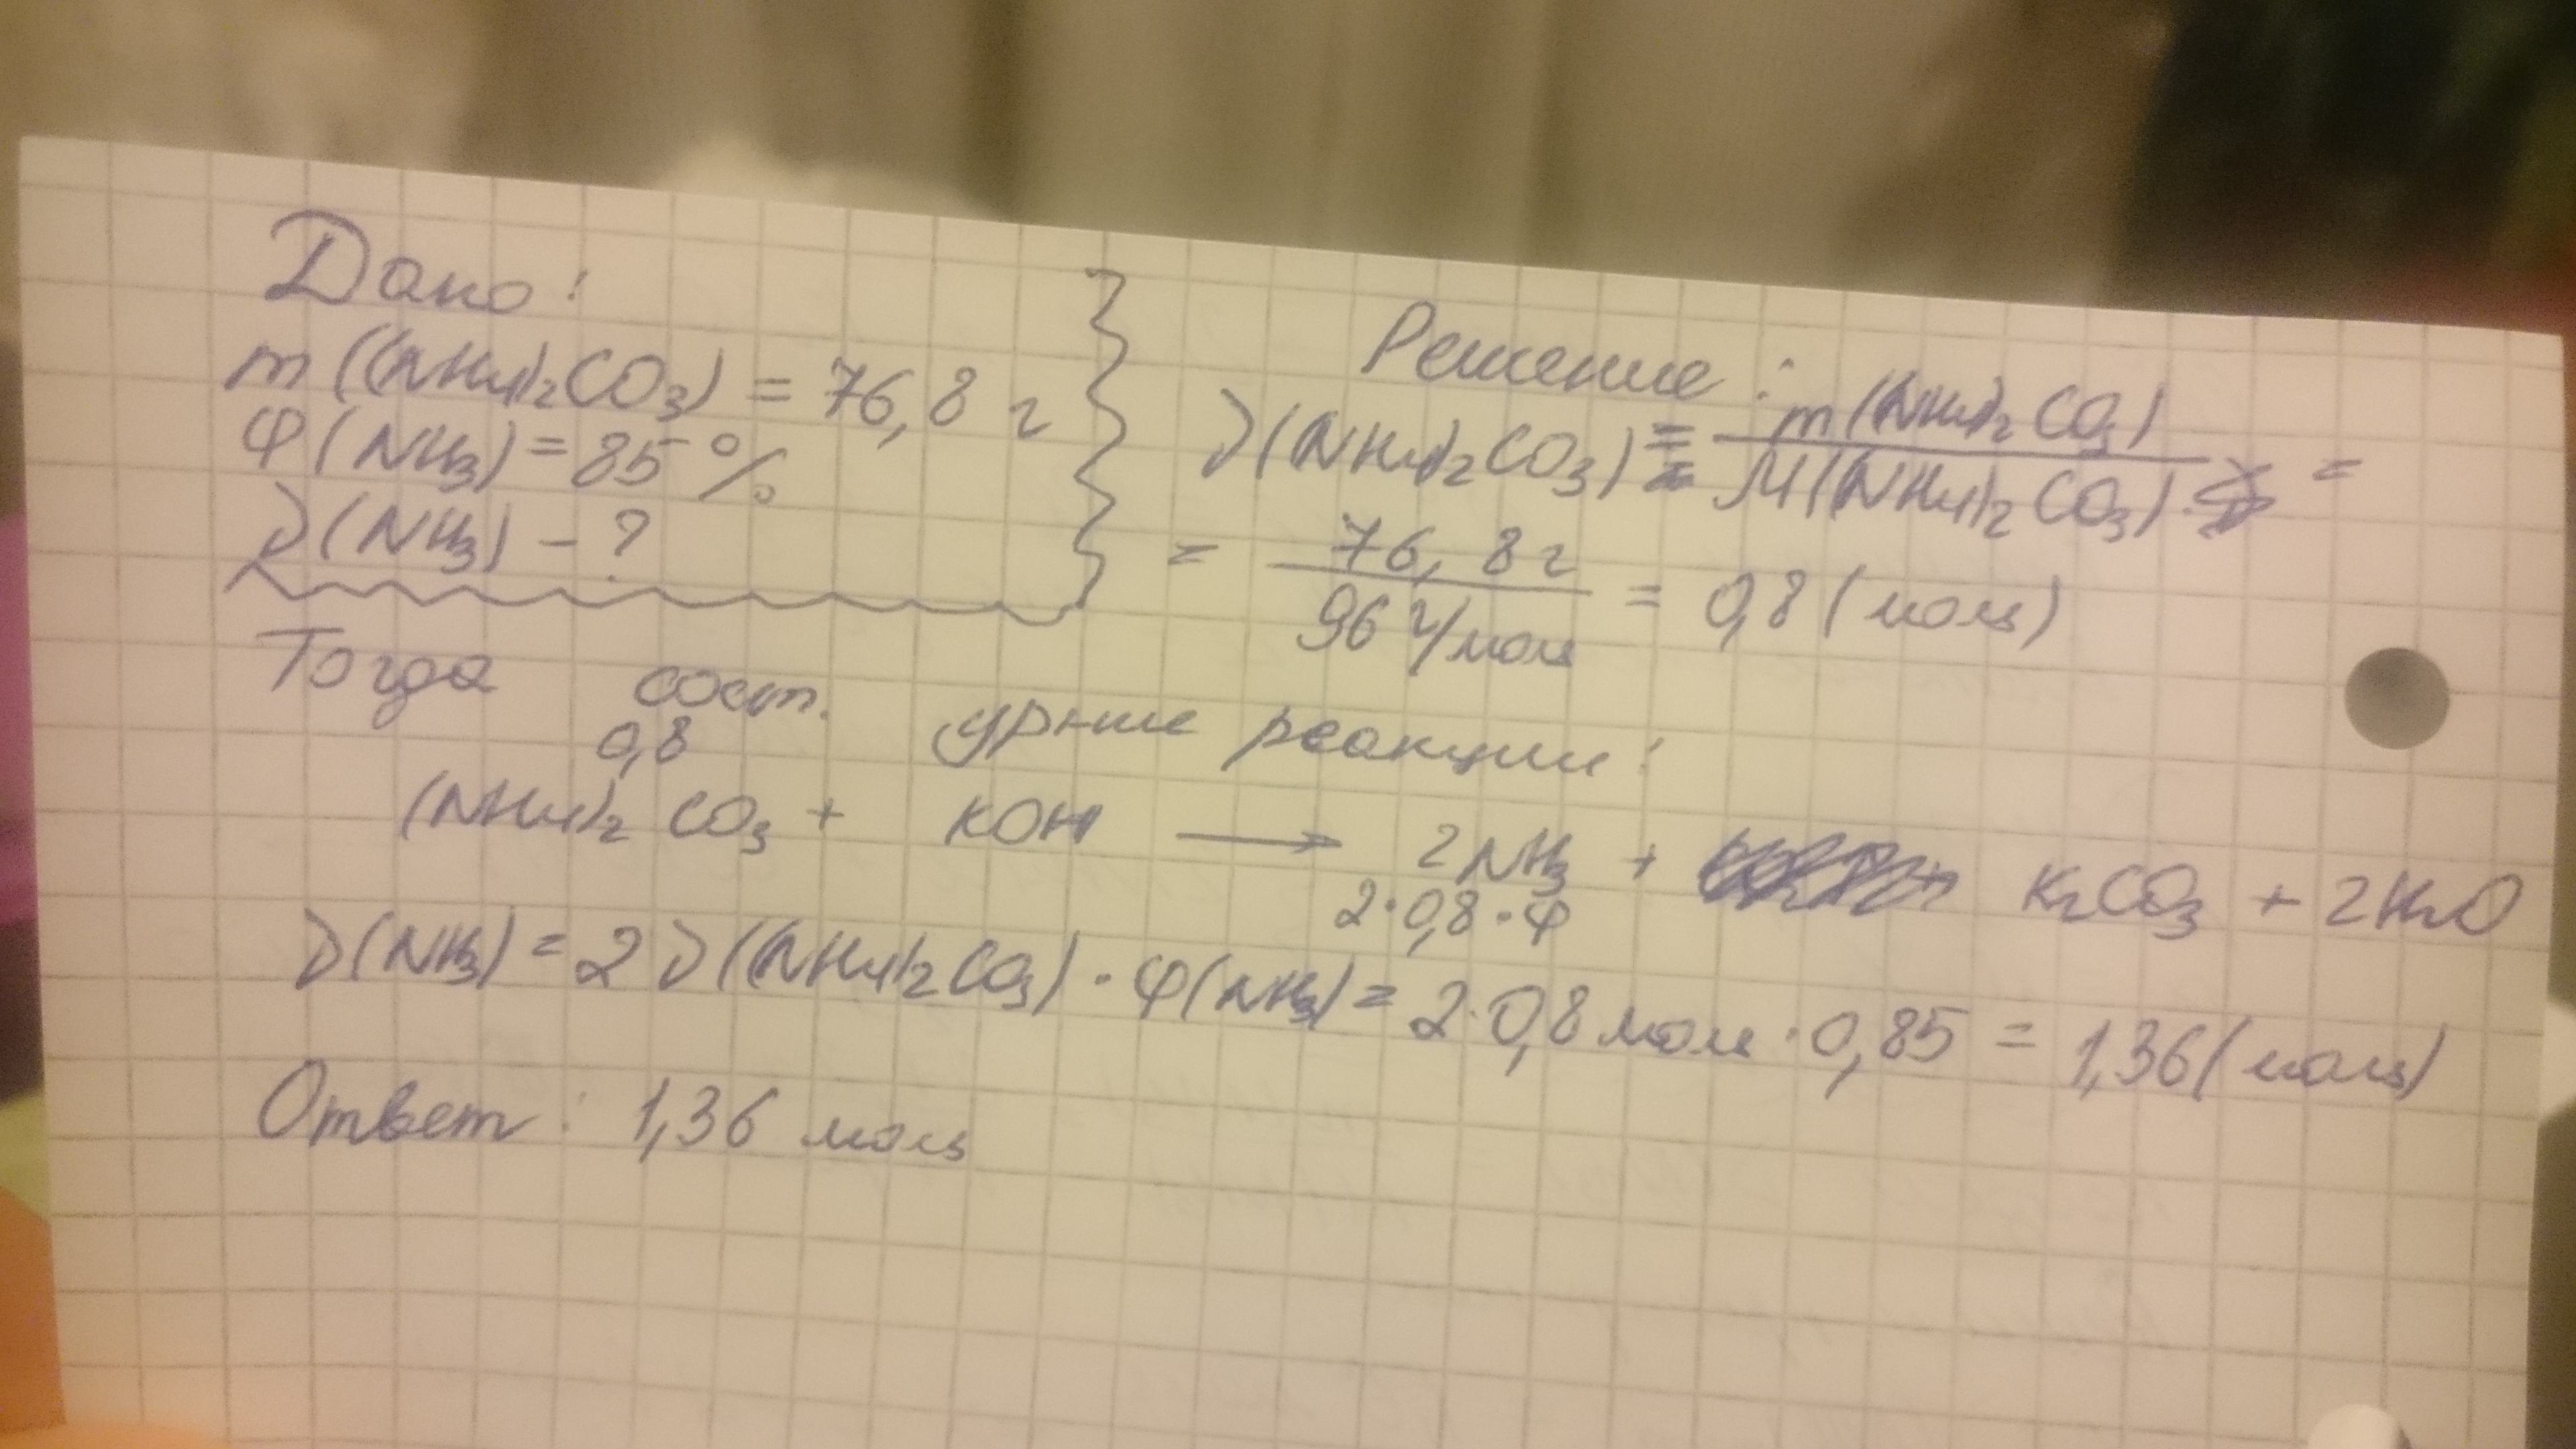 Дано:
m((NH4)2CO3) = 76,8 г
φ(NH3) = 85 %
ν(NH3) - ?
Решение:
ν((NH4)2CO3) = m((NH4)2CO3) / M((NH4)2CO3) =
= 76,8 г / 96 г/моль = 0,8 (моль)
Тогда сост. ур-ние реакции:
0,8
(NH4)2CO3 + KOH → 2NH3 + K2CO3 + 2H2O
2·0,8·φ
ν(NH3) = 2ν((NH4)2CO3) · φ(NH3) = 2·0,8 моль · 0,85 = 1,36 (моль)
Ответ: 1,36 моль